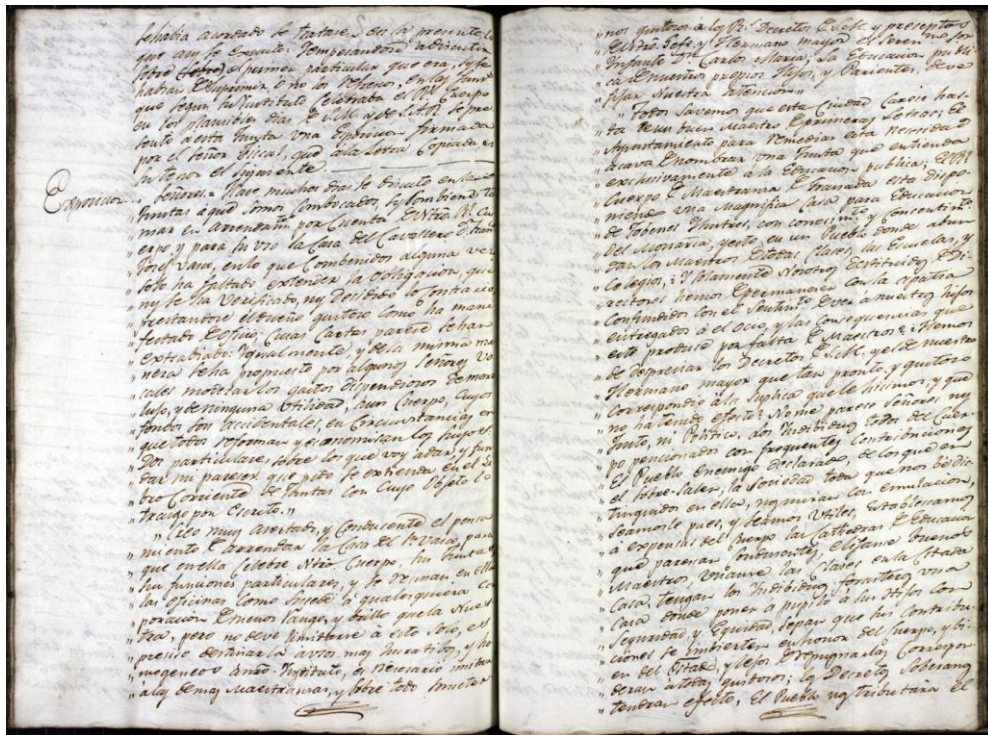 sehabia acordado se tratase, en la presente, lo
que assi se executó: Yempesandose adiscutir
sobre el primer particular que era, si se
habian de suprimir ó no los refrescos, en las Juntas
que segun su Instituto celebraba el Rl Cuerpo
en los plausibles dias de S.M. y de S.A.R. se pre
sentó aesta Junta una Exposicion formada
por el señor Fiscal, que ala letra copiada es
su tenor el siguiente
Exposicion.
Señores. = Hace muchos dias se discute en las
Juntas aque somos combocados, si combiene to
mar en arrendamto por cuenta de Ntro Rl Cu
erpo y para su uso la Casa del Cavallero Dn
José Vasco, en lo que combenidos alguna vez
solo ha faltado extender la obligacion, que
ny se ha verificado, ny desidido lo contrario,
prestandose el dueño gustoso como ha mani
festado de oficio; cuias Cartas parece sehan
extrabiado: Igualmente, y dela misma ma
nera seha propuesto por algunos Señores Vo
cales moderar los gastos dispendiosos de mero
luxo, y deninguna utilidad, aun Cuerpo, cuyos
fondos son accidentales, en circunstancias en
que todos reforman y economisan los suyos
particulares, sobre lo que voy adar, y fun
dar mi pareser que pido se extienda en el Li
bro Corriente de Juntas con cuyo objeto lo
traigo por Escrito.
Creo muy asertado, y conducente el pensa
miento de arrendar la Casa del Sr Vasco, para
que en ella selebre Ntro Cuerpo, sus Juntas
sus funciones particulares, y se reunan en ella
las oficinas como susede á qualesquiera cor
poracion de menos rango, y brillo que la Nues
tra, pero no deve limitarse á esto solo, es
presiso destinarla á usos mas lucrativos, y ho
mogeneos á nuestro Instituto, es nesesario imitar
alas demas Maestranzas, y sobre todo someter
nos gustosos á los Rs Decretos de S.M. y preseptos
del Sermo Sor
Infante Dn Carlos Maria; La Educacion publi
ca de nuestros propios Hijos, y Parientes, deve
fijar Nuestra atencion.
Todos savemos que esta Ciudad carese has
ta de un buen Maestro de primeras Letras: El
Ayuntamiento para remediar esta nesesidad
acava de nombrar una Junta que entienda
exclusivamente á la Educacion publica: El Rl
Cuerpo de Maestranza de Granada esta dispo
niendo una Magnifica Casa para Educacion
de Jobenes Ilustres, con conocimto y consentimto
del Monarca, y esto en un Pueblo donde abun
dan los Maestros de todas clases, las Escuelas, y
Colegios; Y solamente Nosotros Instituidos de Di
rectores hemos de permanecer con la apatia
confundidos con el sentimto de ver á nuestros hijos
entregados á el ocio, y las consequencias que
esto produce por falta de Maestros? Hemos
de despreciar los Decretos de S.M. y el de nuestro
Hermano mayor que tan pronto, y gustoso
correspondió á la suplica que le hicimos, y que
no ha tenido efecto? No me parese Señores ny
Justo, ni Politico. Los Individuos todos del Cuer
po pensionados con frequentes contribuciones
El Pueblo enemigo declarado, de los que en
el sobre-salen, la Sociedad toda que nos be dis
tinguidos en ella, nos miran con emulacion,
seamosle pues, y seamos utiles, establescamos
a expensas del Cuerpo las Cathedras de Educacion
que parescan condusentes, elijanse buenos
Maestros, situanse las Clases en la citada
Casa, tengan los Individuos forasteros una
Casa donde poner a pupilo á sus Hijos con
seguridad, y equidad, sepan que sus contribu
ciones se imbierten en honor del Cuerpo, y bi
en del Estado, y lejos de repugnarlas correspon
deran á todas gustosos; los Decretos Soberanos
tendran efecto, El Pueblo nos tributará el